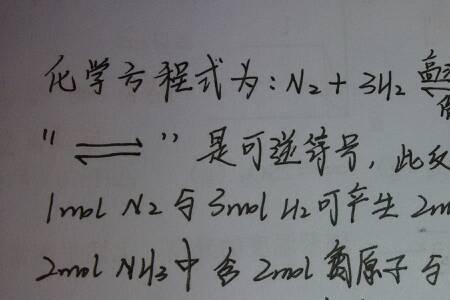 化学方程式为:N₂+3H₂ 高
"⇌"是可逆符号,此反
1mol N₂与3mol H₂可产生 2m
2mol NH₃中含 2mol 氮原子与